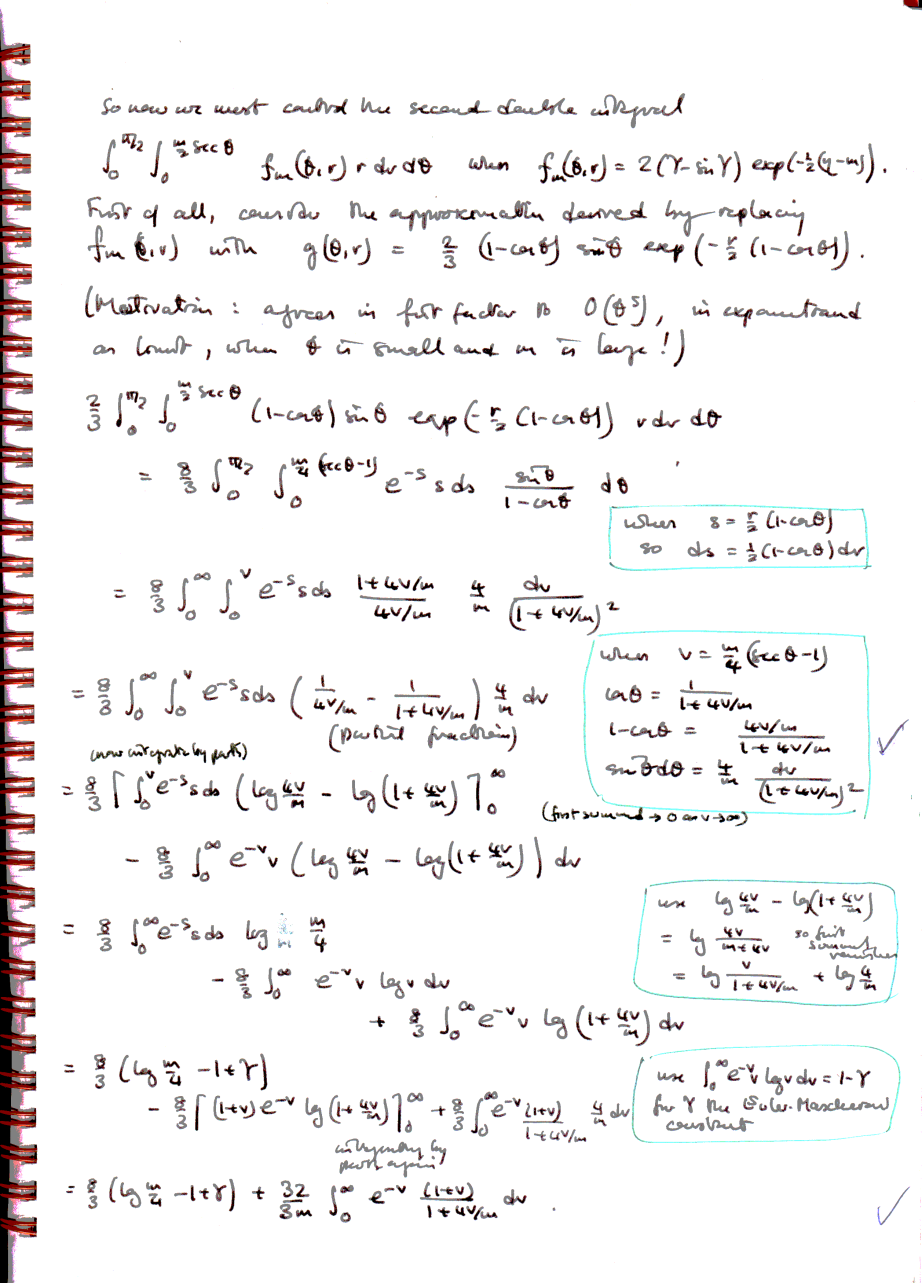 So now we must control the second double integral
∫_0^{π/2} ∫_0^{m/2 sec θ} f_m(θ,r) r dr dθ when f_m(θ,r) = 2(γ - sin γ) exp(-½(η-m)).
First of all, consider the approximation derived by replacing
f_m(θ,r) with g(θ,r) = 2/3 (1-cos θ) sin θ exp(-r/2 (1-cos θ)).
(Motivation: agrees in first factor to O(θ^5), in exponentiand
as limit, when θ is small and m is large!)
2/3 ∫_0^{π/2} ∫_0^{m/2 sec θ} (1-cos θ) sin θ exp(-r/2 (1-cos θ)) r dr dθ
= 8/3 ∫_0^{π/2} ∫_0^{m/4 (sec θ-1)} e^{-s} s ds sin θ/(1-cos θ) dθ
when s = r/2 (1-cos θ)
so ds = ½(1-cos θ) dr
= 8/3 ∫_0^∞ ∫_0^v e^{-s} s ds (1+4v/m)/(4v/m) 4/m dv/(1+4v/m)^2
when v = m/4 (sec θ-1)
cos θ = 1/(1+4v/m)
1-cos θ = (4v/m)/(1+4v/m)
sin θ dθ = 4/m dv/(1+4v/m)^2
✓
= 8/3 ∫_0^∞ ∫_0^v e^{-s} s ds (1/(4v/m) - 1/(1+4v/m)) 4/m dv
(partial fractions)
(now integrate by parts)
= 8/3 [∫_0^v e^{-s} s ds (log 4v/m - log(1+4v/m)]_0^∞
(first summand → 0 as v→∞)
- 8/3 ∫_0^∞ e^{-v} v (log 4v/m - log(1+4v/m)) dv
use log 4v/m - log(1+4v/m)
= log 4v/(m+4v) so first summand vanishes
= log v/(1+4v/m) + log 4/m
= 8/3 ∫_0^∞ e^{-s} s ds log m/4
- 8/3 ∫_0^∞ e^{-v} v log v dv
+ 8/3 ∫_0^∞ e^{-v} v log(1+4v/m) dv
= 8/3 (log m/4 - 1+γ)
- 8/3 [(1+v) e^{-v} log(1+4v/m)]_0^∞ + 8/3 ∫_0^∞ e^{-v} (1+v)/(1+4v/m) 4/m dv
integrating by
parts again
use ∫_0^∞ e^{-v} v log v dv = 1-γ
for γ the Euler-Mascheroni
constant
= 8/3 (log m/4 - 1+γ) + 32/3m ∫_0^∞ e^{-v} (1+v)/(1+4v/m) dv.
✓